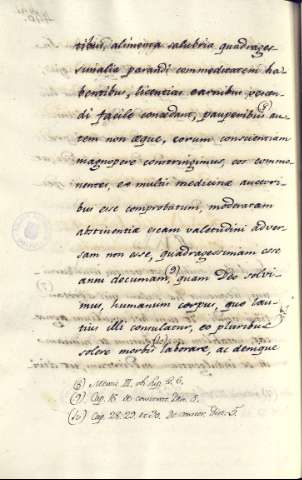 tibus, alimenta salubria quadrages-
simalia parandi commoditatem ha-
bentibus, licentias carnibus vescen-
di facile concedant, pauperibus au-
tem non æque, eorum conscientiam
magnopere constringimus, eos commo-
nentes, ex multis medicinæ auctori-
bus esse comprobatum, moderatam
abstinentiæ escam valetudini adver-
sam non esse, quadragessimam esse
anni decimam, (9) quam Deo solvi-
mus, humanum corpus, quo lau-
tius illi consulatur, eo pluribus
solere morbis (10) laborare, ac denique
(9) Cap. 16 de consecrat. Dist. 5.
(10) Cap. 28. 29. et 30. de consecr. Dist. 5.